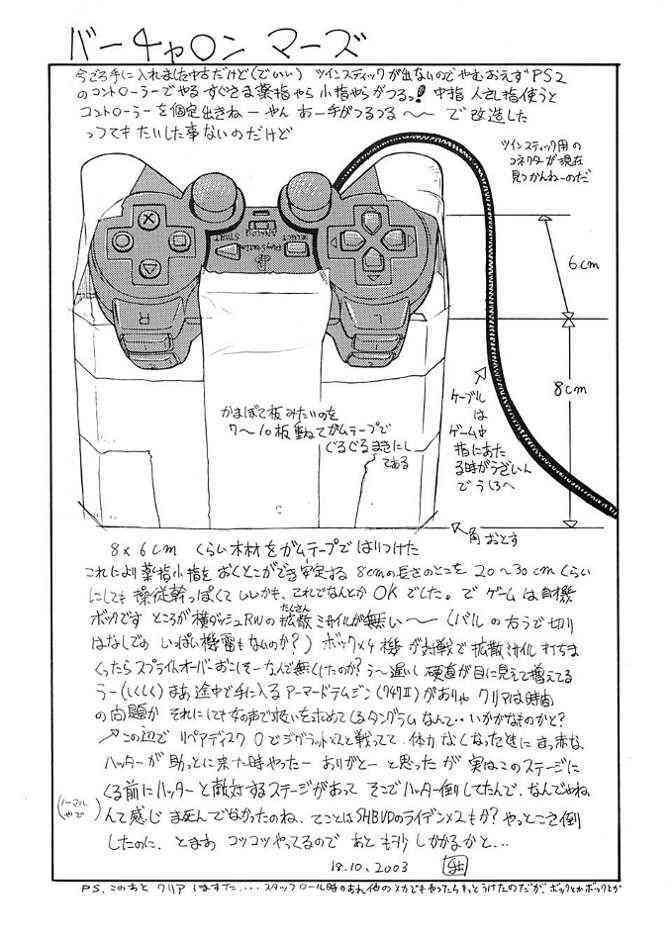 バーチャロン マーズ
今ごろ手に入れました中古だけど(でいい) ツインスティックが出ないのでやむおえずPS2
のコントローラーでやる すぐさま薬指やら小指やらがつるっ! 中指 人さし指使うと
コントローラーを固定出きねーやん あー手がつるつる〜〜 で改造した
っつてもたいした事ないのだけど
ツインスティック用の
コネクターが現在
見つかんねーのだ
6cm
8cm
START
ANALOG
SELECT
PlayStation
R
L
ケーブル
は
ゲーム中
指にあた
る時がうざいん
でうしろへ
かまぼこ板みたいのを
7〜10板重ねてガムテープで
ぐるぐるまきにし
てある
角おとす
8×6cm くらい木材をガムテープではりつけた
これにより薬指小指をおくとこができ安定する 8cmの長さのとこを 20〜30cmくらい
にしても操従幹っぽくていいかも、これでなんとかOKでした。で ゲームは自機
ボックです ところが横ダッシュRWの拡散ミサイルが無い〜 (バルの右うで切り
はなしでの いっぱい機雷もないのか?) ボック×4機が対戦で拡散ミサイルすてちま
くったらスプライトオーバーおこしそーなんで無くしたのか? う〜遅いし 硬直が目に見えて増えてる
うー(しくしく) まあ途中で手に入るアーマードテムジン(747II)がありゃ クリアは時間
の問題か それにしても女の声で救いを求めてくるタングラムなんて・・いかがなものかと?
この辺でリペアディスク0でジグラット×2と戦ってて、体力なくなった時に まっ赤な
ハッターが助っとに来た時やったー ありがとーと思ったが 実はこのステージに
くる前にハッターと敵対するステージがあって そこでハッター倒してたんで、なんでやねん
(ノーマルやで)
んて感じ まあ死んでなかったのね、てことはSHBVDのライデン×2も? やっとこさ倒
したのに、とまあ コツコツやってるので あともう少しかかるかと…
18.10.2003
PS、このあと クリア しますた・・・・スタッフロール時のあれ他のメカでもやったらもっとうけたのだが、ボックとかボックとか